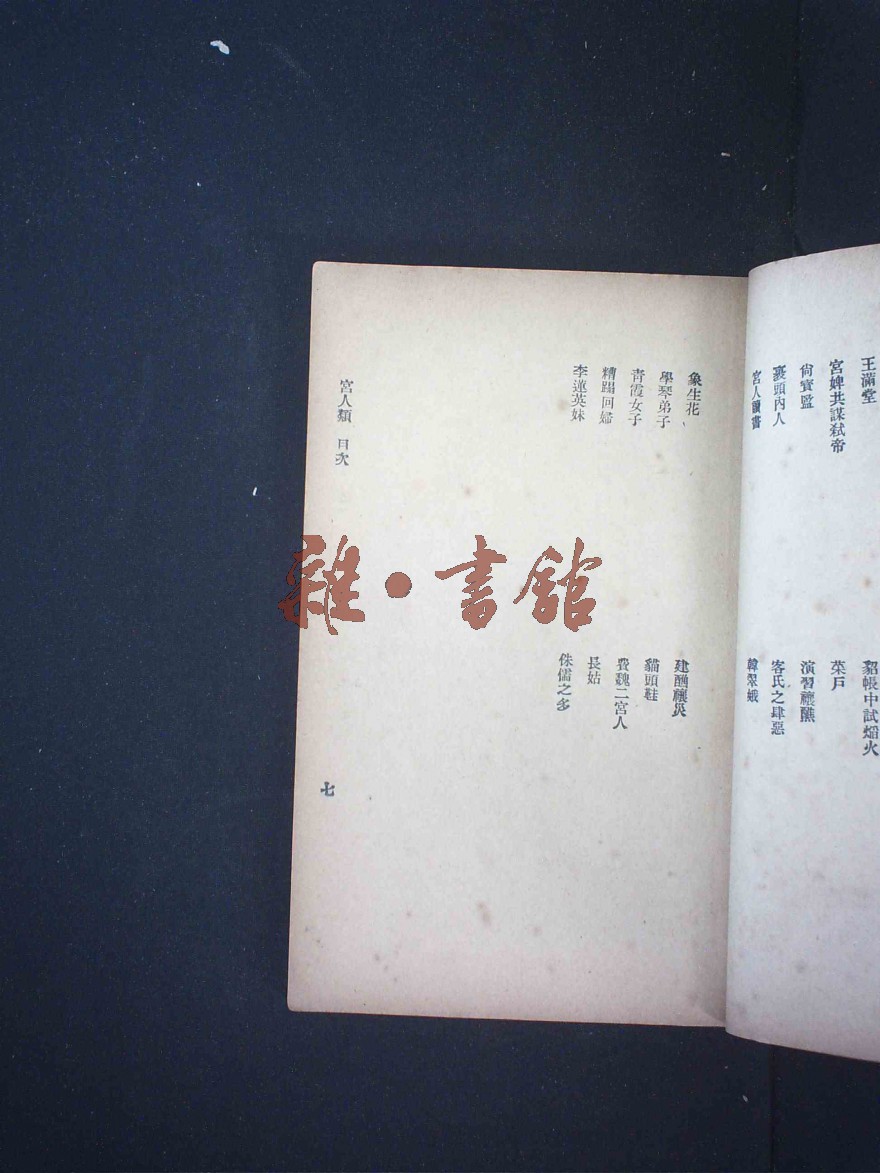 王滿堂
貂帳中試煏火
宮婢共謀弒帝
菜戶
尙寶監
演習禳醮
裹頭內人
客氏之肆惡
宮人讀書
韓翠娥
象生花
建醮禳災
學琴弟子
貓頭鞋
靑霞女子
費魏二宮人
糟蹋回婦
長姑
李蓮英妹
侏儒之多
宮人類 目次
七
雜·書館